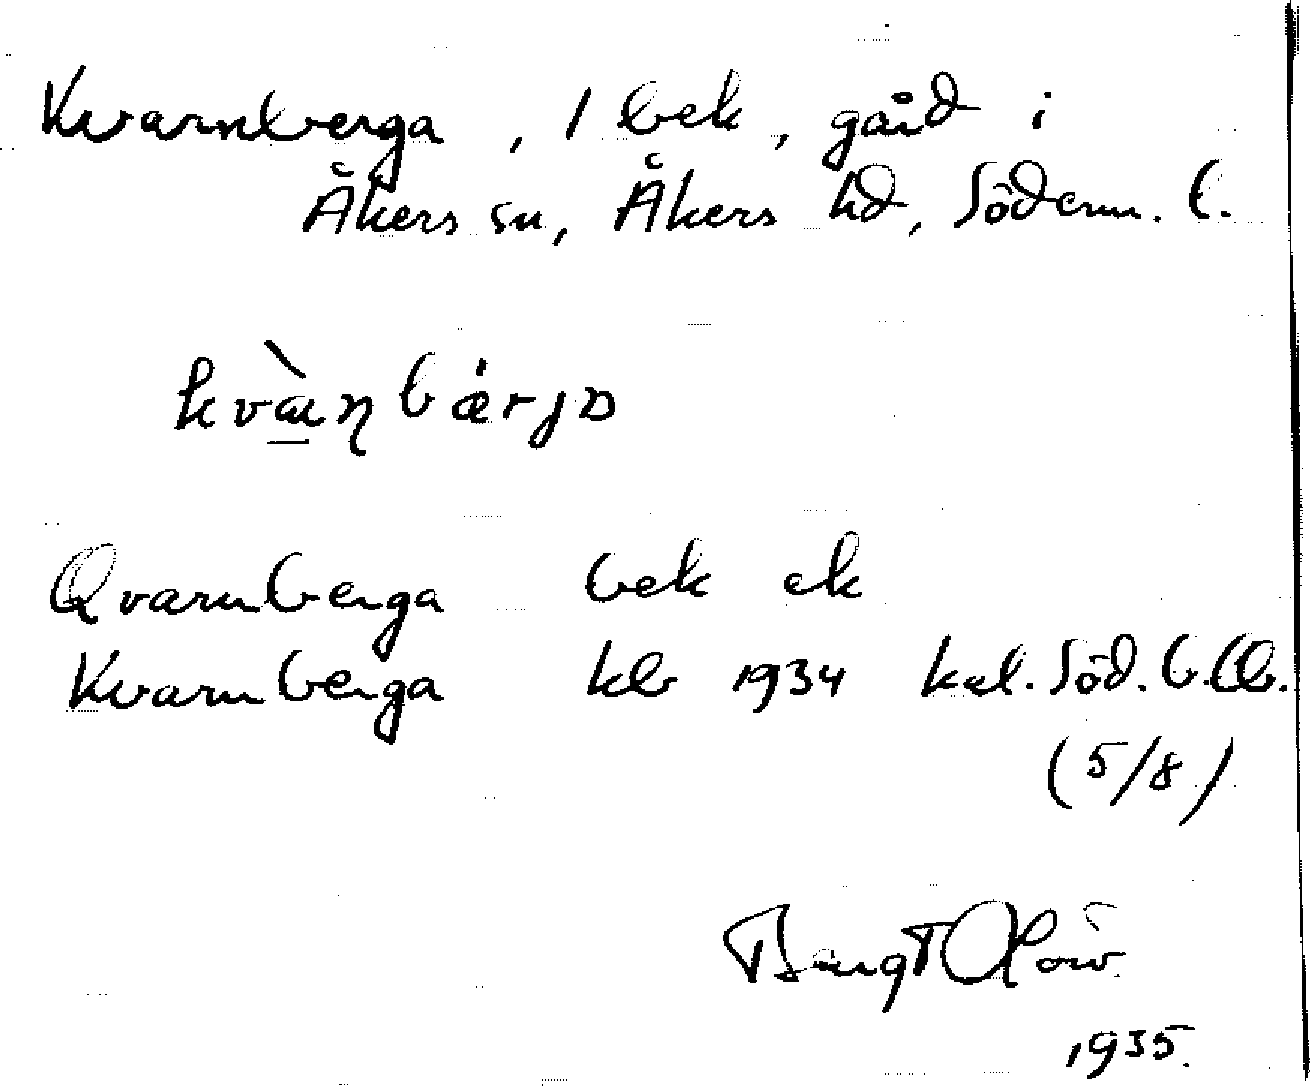 Kvarnberga, 1 bek, gård i
Åkers sn, Åkers hd, Söderm. l.
Qvarnberga bek ek
Kvarnberga kb 1934 kal. Söd.
(5/8)
Bengt
1935.